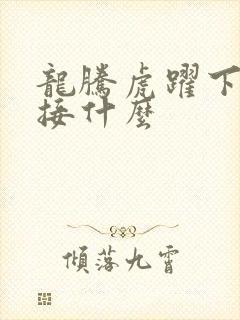 龍騰虎躍下
接什麼
傾落九霄